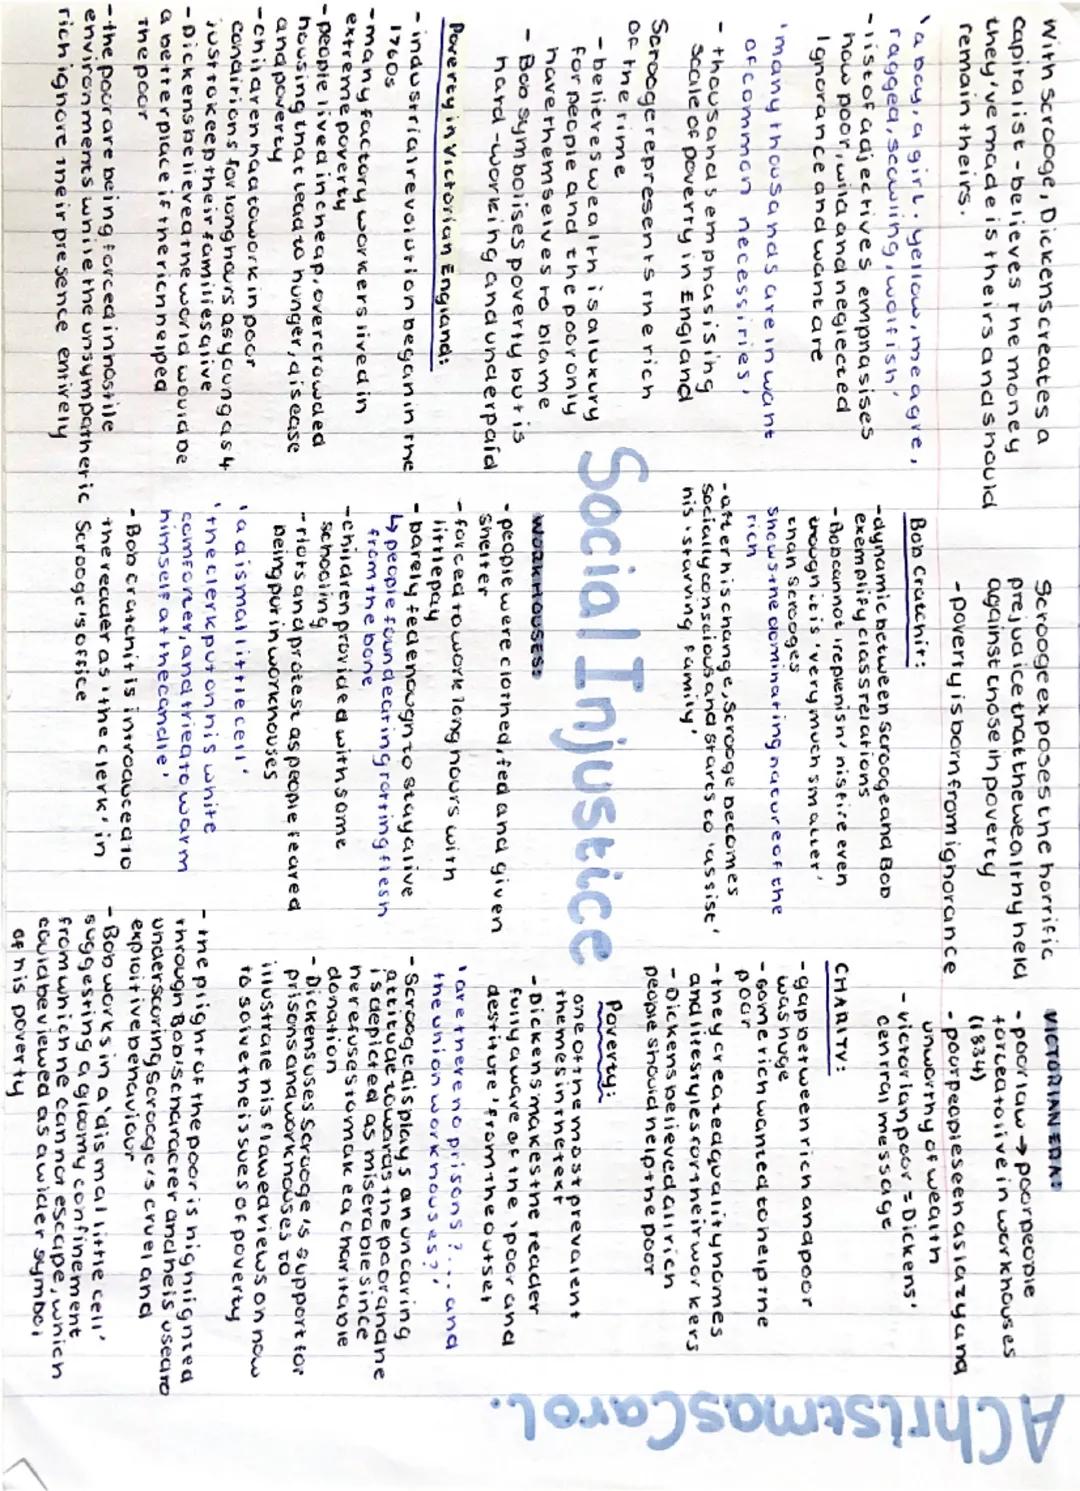 With Scrooge, Dickens creates a
capitalist - believes the money
they've made is theirs and should
remain theirs.
'a boy, a girl. yellow, meagre,
ragged, scowling, wolfish'
- list of adjectives emphasises
how poor, wild and neglected
Ignorance and want are
'many thousands are in want
of common necessities'
- thousands emphasising
scale of poverty in England
Scrooge represents the rich
of the time
- believes wealth is a luxury
for people and the poor only
have themselves to blame
- Bob symbolises poverty but is
hard-working and underpaid
Poverty in Victorian England:
- industrial revolution began in the
1760s
- many factory workers lived in
extreme poverty
- people lived in cheap, overcrowded
housing that lead to hunger, disease
and poverty
- children had to work in poor
conditions for long hours as young as 4
just to keep their families alive
- Dickens believed the world would be
a better place if the rich helped
the poor
- the poor are being forced in hostile
environments while the unsympathetic
rich ignore their presence entirely
Scrooge exposes the horrific
prejudice that the wealthy held
against those in poverty
- poverty is born from ignorance
Bob Cratchit:
- dynamic between Scrooge and Bob
exemplify class relations
- Bob cannot 'replenish' his fire even
though it is 'very much smaller'
than Scrooges
shows the dominating nature of the
rich
- after his change, Scrooge becomes
socially conscious and starts to 'assist'
his 'starving family'
Social Injustice
WORKHOUSES:
- people were clothed, fed and given
shelter
- forced to work long hours with
little pay
- barely fed enough to stay alive
↳ people found eating rotting flesh
from the bone
- children provided with some
schooling
- riots and protest as people feared
being put in workhouses
'a dismal little cell'
'the clerk put on his white
comforter, and tried to warm
himself at the candle'
- Bob Cratchit is introduced to
the reader as 'the clerk' in
Scrooge's office
VICTORIAN ERA:
- poor law → poor people
forced to live in workhouses
(1834)
- poor people seen as lazy and
unworthy of wealth
- victorian poor = Dickens'
central message
CHARITY:
- gap between rich and poor
was huge
- some rich wanted to help the
poor
- they created quality homes
and lifestyles for their workers
- Dickens believed all rich
people should help the poor
Poverty:
one of the most prevalent
themes in the text
- Dickens makes the reader
fully aware of the 'poor and
destitute' from the outset
'are there no prisons?... and
the union workhouses?'
- Scrooge displays an uncaring
attitude towards the poor and he
is depicted as miserable since
he refuses to make a charitable
donation
- Dickens uses Scrooge's support for
prisons and workhouses to
illustrate his flawed views on how
to solve the issues of poverty
- the plight of the poor is highlighted
through Bob's character and he is used to
underscoring Scrooge's cruel and
exploitive behaviour
- Bob works in a 'dismal little cell'
suggesting a gloomy confinement
from which he cannot escape, which
could be viewed as a wider symbol
of his poverty
A Christmas Carol.